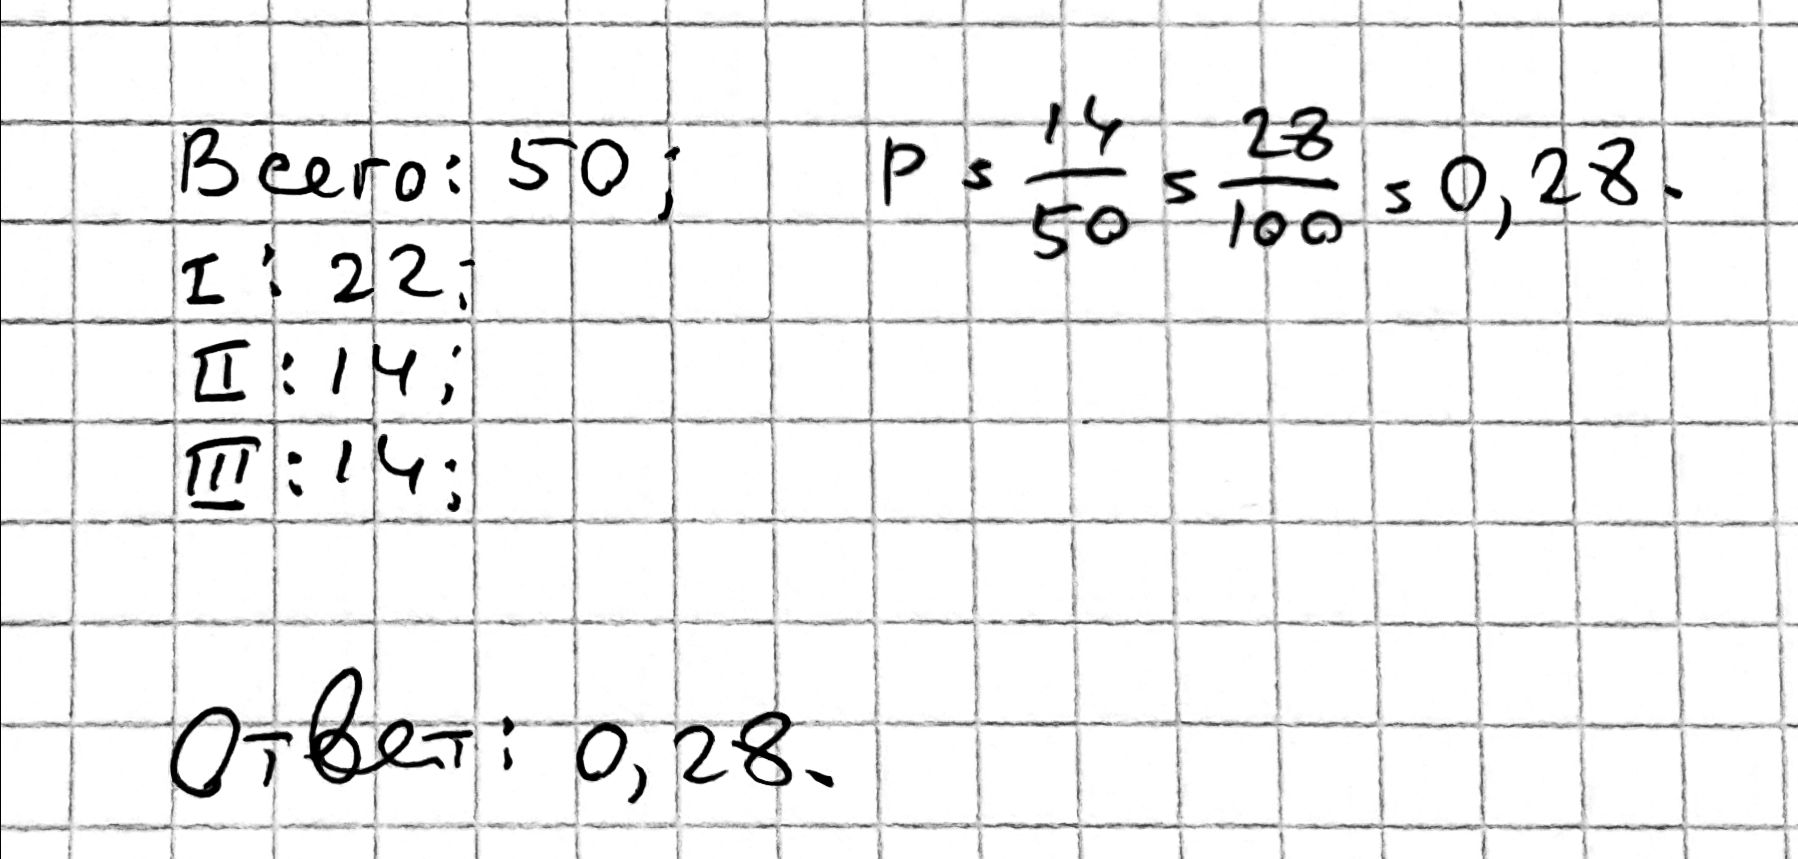 Всего: 50;
I: 22;
II: 14;
III: 14;
P = 14/50 = 28/100 = 0,28.
Ответ: 0,28.